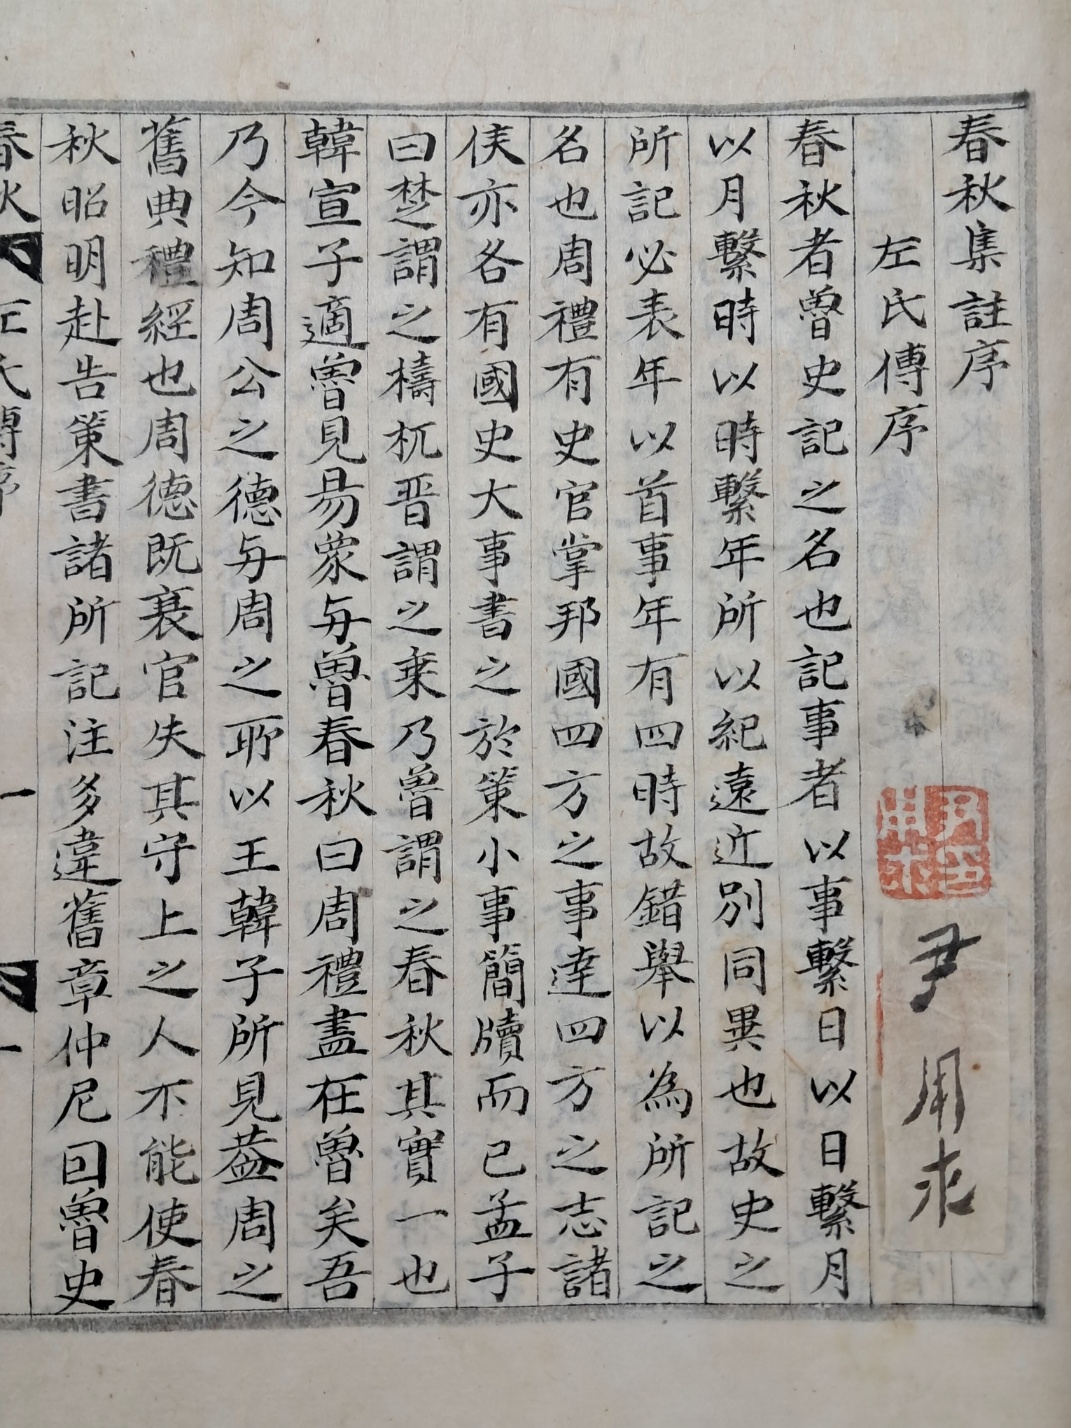 春秋集註序
左氏傳序
尹用求
春秋者魯史記之名也記事者以事繫日以日繫月
以月繫時以時繫年所以紀遠近別同異也故史之
所記必表年以首事年有四時故錯舉以為所記之
名也周禮有史官掌邦國四方之事達四方之志諸
侯亦各有國史大事書之於策小事簡牘而已孟子
曰楚謂之檮杌晋謂之乗乃魯謂之春秋其實一也
韓宣子適魯見易象与魯春秋曰周禮盡在魯矣吾
乃今知周公之德与周之所以王韓子所見蓋周之
舊典禮經也周德既衰官失其守上之人不能使春
秋昭明赴告策書諸所記注多違舊章仲尼因魯史
春秋 左氏傳序 一 一